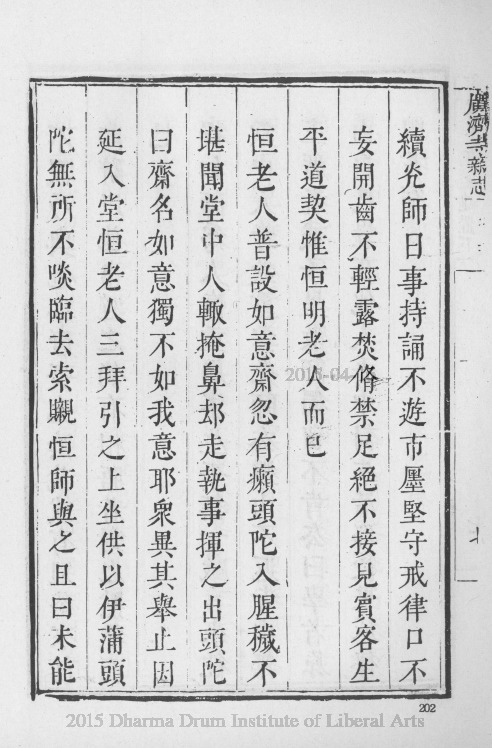 廣濟寺新志
續光師日事持誦不遊市廛堅守戒律口不
妄開齒不輕露焚脩禁足絕不接見賓客生
平道契惟恒明老人而已
恒老人普設如意齋忽有癩頭陀入腥穢不
堪聞堂中人輙掩鼻却走執事揮之出頭陀
曰齋名如意獨不如我意耶衆異其舉止因
延入堂恒老人三拜引之上坐供以伊蒲頭
陀無所不啖臨去索襯恒師與之且曰未能
202
2015 Dharma Drum Institute of Liberal Arts